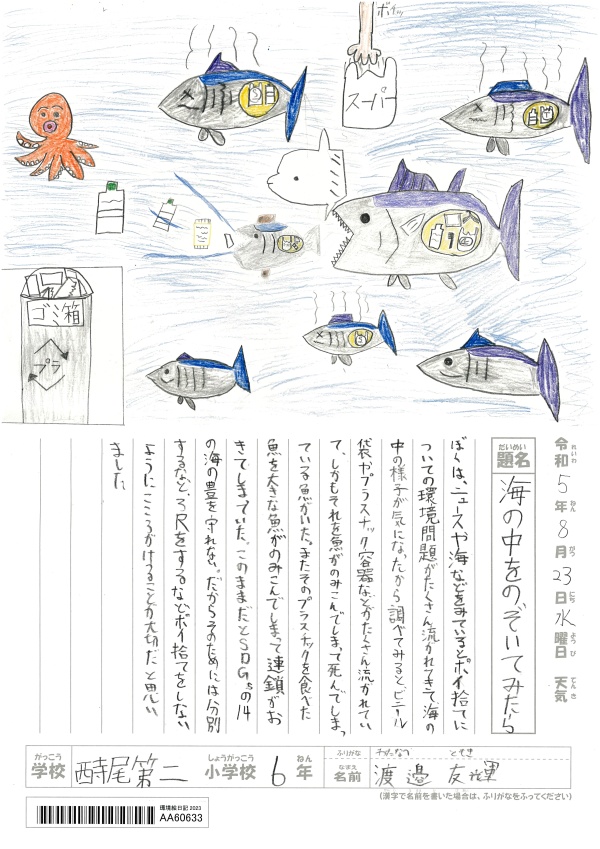 ポイッ
スーパー
ゴミ箱
プラ
令和5年8月23日水曜日 天気
れいわ ねん がつ にち ようび てんき
だいめい
題名 海の中をのぞいてみたら
ぼくは、ニュースや海などをみているとポイ捨てに
ついての環境問題がたくさん流れてきて、海の
中の様子が気になったから調べてみるとビニール
袋やプラスチック容器などがたくさん流がれてい
て、しかもそれを魚がのみこんでしまって死んでしまっ
ている魚がいた。またそのプラスチックを食べた
魚を大きな魚がのみこんでしまって連鎖がお
きてしまっていた。このままだとSDGsの14
の海の豊を守れない。だからそのためには分別
するなど3Rをするなどポイ捨てをしない
ようにこころがけることが大切だと思い
ました
がっこう しょうがっこう ねん ふりがな わたなべ ともき
学校 時尾第二 小学校 6年 なまえ 名前 渡邉 友輝
(漢字で名前を書いた場合は、ふりがなをふってください)
環境絵日記 2023
AA60633